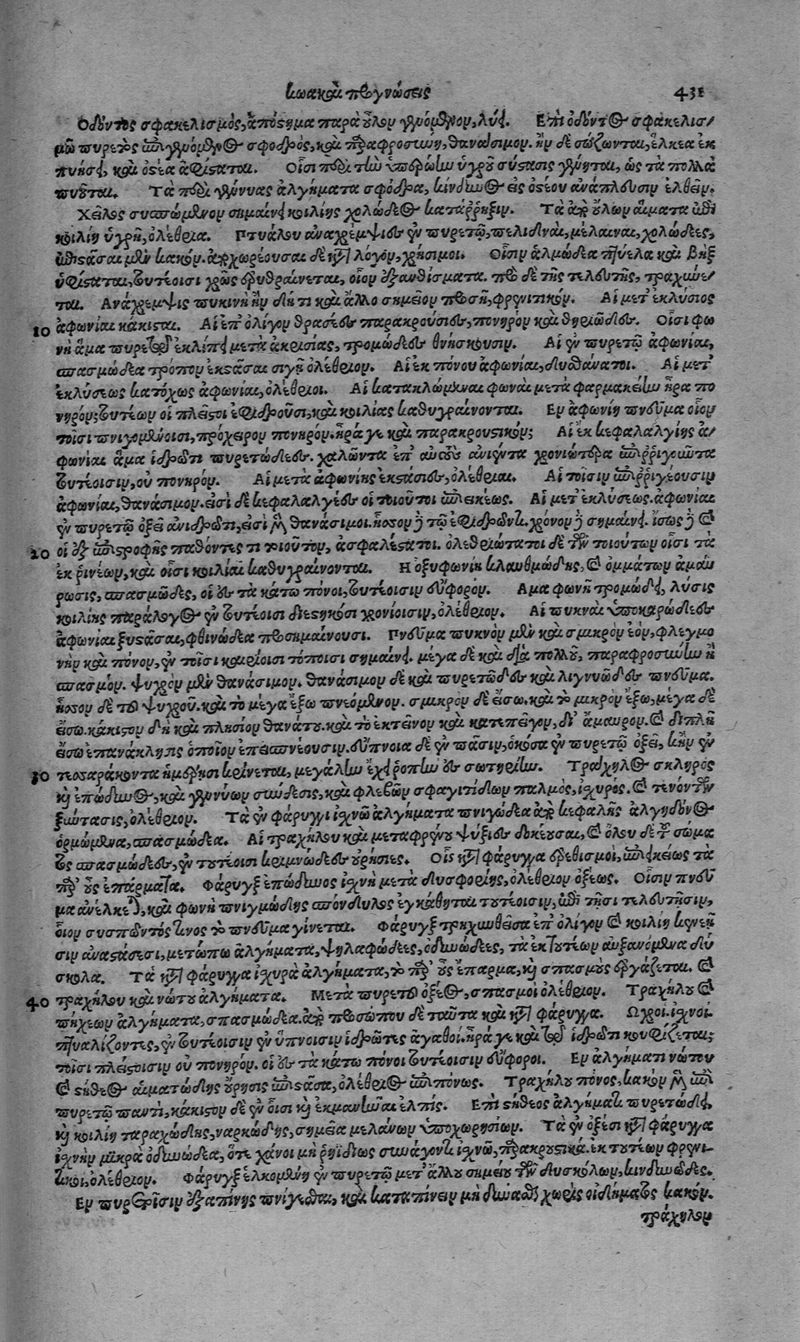 κωακαὶ προγνώσεις 431
Ὀδόντος σφακελισμὸς, ἀπόστημα παρὰ οὖλον γινόμενον, λύει. Ἐπὶ ὀδόντος σφακελισ/
μῷ πυρετὸς ἐπιγινόμενος σφοδρὸς, καὶ παραφροσύνη, θανάσιμον. ἢν δὲ σώζωνται, ἕλκεα ἐκ
πυήσει, καὶ ὀστέα ἀφίσταται. Οἷσι περὶ τὴν ὑπερώην ὑγροῦ σύστασις γίνηται, ὡς τὰ πολλὰ
πυοῦται. Τὰ περὶ γένυας ἀλγήματα σφόδρα, κίνδυνος εἰς ὀστέον ἀνάπλευσιν ἐλθεῖν.
Χεῖλος συσπώμενον σημαίνει κοιλίης χολώδεος κατάρρηξιν. Τὰ ἀπὸ οὔλων αἵματα ἐπὶ
κοιλίῃ ὑγρῇ, ὀλέθρια. Πτυάλου ἀναχρέμψιες ἐν πυρετῷ, πελιδναὶ, μέλαιναι, χολώδεες,
ἐπιστᾶσαι μὲν κακόν. ἀποχωρέουσαι δὲ κατὰ λόγον, χρήσιμοι. Οἷσιν ἁλμώδεα πτύελα καὶ βὴξ
ὑφίσταται, τουτέοισι χρὼς ἐρυθραίνεται, οἷον ἐξανθίσματα. πρὸ δὲ τῆς τελευτῆς, τραχύνε/
ται. Ἀνάχρεμψις πυκινὴ ἢν δή τι καὶ ἄλλο σημεῖον προσῇ, φρενιτικόν. Αἱ μετ' ἐκλύσιος
10 ἀφωνίαι κάκισται. Αἱ ἐπ' ὀλίγον θρασέες παρακρούσιες, πονηρὸν καὶ θηριώδεες. Οἷσι φω
νὴ ἅμα πυρετῷ ἐκλείπει μετὰ ἀκρισίας, τρομώδεες θνήσκουσιν. Αἱ ἐν πυρετῷ ἀφωνίαι,
σπασμώδεα τρόπον ἐκστᾶσαι σιγῇ ὀλέθριον. Αἱ ἐκ πόνου ἀφωνίαι, δυσθάνατοι. Αἱ μετ'
ἐκλύσεως κατόχως ἀφωνίαι, ὀλέθριοι. Αἱ κατακλώμεναι φωναὶ μετὰ φαρμακείην ἦρα πο
νηρόν; τουτέων οἱ πλεῖστοι ἐφιδροῦσι, καὶ κοιλίας καθυγραίνονται. Ἐν ἀφωνίῃ πνεῦμα οἷον
τοῖσι πνιγομένοισι, πρόχειρον πονηρόν. ἦρά γε καὶ παρακρουστικόν; Αἱ ἐκ κεφαλαλγίης ἀ/
φωνίαι ἅμα ἱδρῶτι πυρετώδεες. χαλῶντα ἐπ' αὐτοὺς ἀνιέντα χρονιώτερα ἐπιρριγεῦντα
τουτέοισιν, οὐ πονηρόν. Αἱ μετὰ ἀφωνίης ἐκστάσιες, ὀλέθριαι. Αἱ τοῖσιν ἐπιρριγέουσιν
ἀφωνίαι, θανάσιμον. εἰσὶ δὲ κεφαλαλγέες οἱ τοιοῦτοι ἐπιεικέως. Αἱ μετ' ἐκλύσεως. ἀφωνίαι
ἐν πυρετῷ ὀξεῖ ἀνιδρῶτι, εἰσὶ μὲν θανάσιμοι. ἧσσον δὲ τῷ ἐφιδρῶντι. χρόνον δὲ σημαίνει. ἴσως δὲ καὶ
20 οἱ ἐξ ὑποστροφῆς παθόντες τι τοιοῦτον, ἀσφαλέστατοι. ὀλεθριώτατοι δὲ τῶν τοιούτων οἷσι τὰ
ἐκ ῥινέων, καὶ οἷσι κοιλίαι καθυγραίνονται. Ἡ ὀξυφωνίη κλαυθμώδης, καὶ ὀμμάτων ἀμαύ
ρωσις, σπασμῶδες, οἱ ἐς τὰ κάτω πόνοι, τουτέοισιν εὔφορον. Ἅμα φωνῇ τρομώδει, λύσις
κοιλίης παράλογος ἐν τουτέοισι διεστηκόσι χρονίοισιν, ὀλέθριον. Αἱ πυκναὶ ὑποκαρώδεες
ἀφωνίαι ξυστᾶσαι, φθινώδεα προσημαίνουσι. Πνεῦμα πυκνὸν μὲν καὶ σμικρὸν ἐὸν, φλεγμο
νὴν καὶ πόνον, ἐν τοῖσι καιρίοισι τόποισι σημαίνει. μέγα δὲ καὶ διὰ πολλοῦ, παραφροσύνην ἢ
σπασμόν. ψυχρὸν μὲν θανάσιμον. θανάσιμον δὲ καὶ πυρετῶδες καὶ λιγνυῶδες πνεῦμα.
ἧσσον δὲ τοῦ ψυχροῦ. καὶ τὸ μέγα ἔξω πνεόμενον. σμικρὸν δὲ εἴσω. καὶ τὸ μικρὸν ἔξω, μέγα δὲ
εἴσω. κάκιστον δὴ καὶ πλησίον θανάτου. καὶ τὸ ἐκτεῖνον καὶ κατεπεῖγον, δι' ἀμαυρόν. καὶ διπλῆ
εἴσω ἐπανάκλησις ὁποῖον ἐπεισπνέουσιν. εὔπνοια δὲ ἐν πᾶσιν, ὁκόσα ἐν πυρετῷ ὀξεῖ, κἢν ἐν
30 τεσσαράκοντα ἡμέρῃσι κρίνεται, μεγάλην ἔχει ῥοπὴν ἐς σωτηρίην. Τράχηλος σκληρὸς
καὶ ἐπώδυνος, καὶ γενύων σύνδεσις, καὶ φλεβῶν σφαγιτίδων παλμὸς, ἰσχυρὸς. καὶ τενόντων
ξύντασις, ὀλέθριον. Τὰ ἐν φάρυγγι ἰσχνῷ ἀλγήματα πνιγώδεα ἀπὸ κεφαλῆς ἀλγηδόνος
ὁρμώμενα, σπασμώδεα. Αἱ τραχήλου καὶ μεταφρένου ψύξιες δοκέουσαι, καὶ ὅλου δὲ τοῦ σώμα
τος σπασμώδεες, ἐν τουτέοισι κριμνώδεες οὐρήσιες. Οἷς κατὰ φάρυγγα ἐρεθισμοὶ, ἐπιεικέως τὰ
παρ' οὖς ἐπάρματα. Φάρυγξ ἐπώδυνος ἰσχνὴ μετὰ δυσφορίης, ὀλέθριον ὀξέως. Οἷσιν πνεῦ
μα ἀνέλκεται, καὶ φωνὴ πνιγμώδης σπόνδυλος ἐγκάθηται τουτέοισιν, ἐπὶ τῇσι τελευτῇσιν,
οἷον συσπῶντός τινος τὸ πνεῦμα γίνεται. Φάρυγξ τρηχυνθεῖσα ἐπ' ὀλίγον καὶ κοιλίη κενεῇ
σιν ἀναστάσεσι, μετώπῳ ἀλγήματα, ψηλαφώδεες, ὀδυνώδεες, τὰ ἐκ τουτέων αὐξανόμενα δύ
σκολα. Τὰ κατὰ φάρυγγα ἰσχυρὰ ἀλγήματα, τὸ παρ' οὖς ἔπαρμα, καὶ σπασμοὺς ἐργάζεται. καὶ
40 τραχήλου καὶ νώτου ἀλγήματα. Μετὰ πυρετοῦ ὀξέος, σπασμοὶ ὀλέθριον. Τραχήλου καὶ
πήχεων ἀλγήματα, σπασμώδεα. ἀπὸ προσώπου δὲ ταῦτα καὶ κατὰ φάρυγγα. Ὠχροὶ. ἰσχνοὶ.
πτυαλίζοντες, ἐν τουτέοισιν ἐν ὕπνοισιν ἱδρῶτες ἀγαθοί. ἦρά γε καὶ τὸ ἱδρῶτι κουφίζεται;
τοῖσι πλείστοισιν οὐ πονηρόν. οἱ ἐς τὰ κάτω πόνοι τουτέοισιν εὔφοροι. Ἐν ἀλγήματι νώτου
καὶ στήθεος αἱματώδης οὔρησις ἐπιστᾶσα, ὀλέθριος ἐπιπόνως. Τραχήλου πόνος, κακὸν μὲν ἐπὶ
πυρετῷ παντὶ, κάκιστον δὲ ἐν οἷσι καὶ ἐκμανῆναι ἐλπίς. Ἐπὶ στήθεος ἀλγήματι πυρετώδει,
καὶ κοιλίη ταραχώδης, ναρκώδης, σημεῖα μελάνων ὑποχωρησίων. Τὰ ἐν ὀξέσι κατὰ φάρυγγα
ἰσχνὴν μικρὰ ὀδυνώδεα, ὅτε χάνοι μὴ ῥηϊδίως συνάγοντι ἰσχνῷ, παρακρουστικὰ. ἐκ τουτέων φρενι-
τικοὶ, ὀλέθριον. Φάρυγξ ἑλκομένη ἐν πυρετῷ μετ' ἄλλου σημείου τῶν δυσκόλων, κινδυνῶδες.
Ἐν πυρετοῖσιν ἐξαπίνης πνίγεσθαι, καὶ καταπίνειν μὴ δύνασθαι χωρὶς οἰδήματος κακόν.
τράχηλον